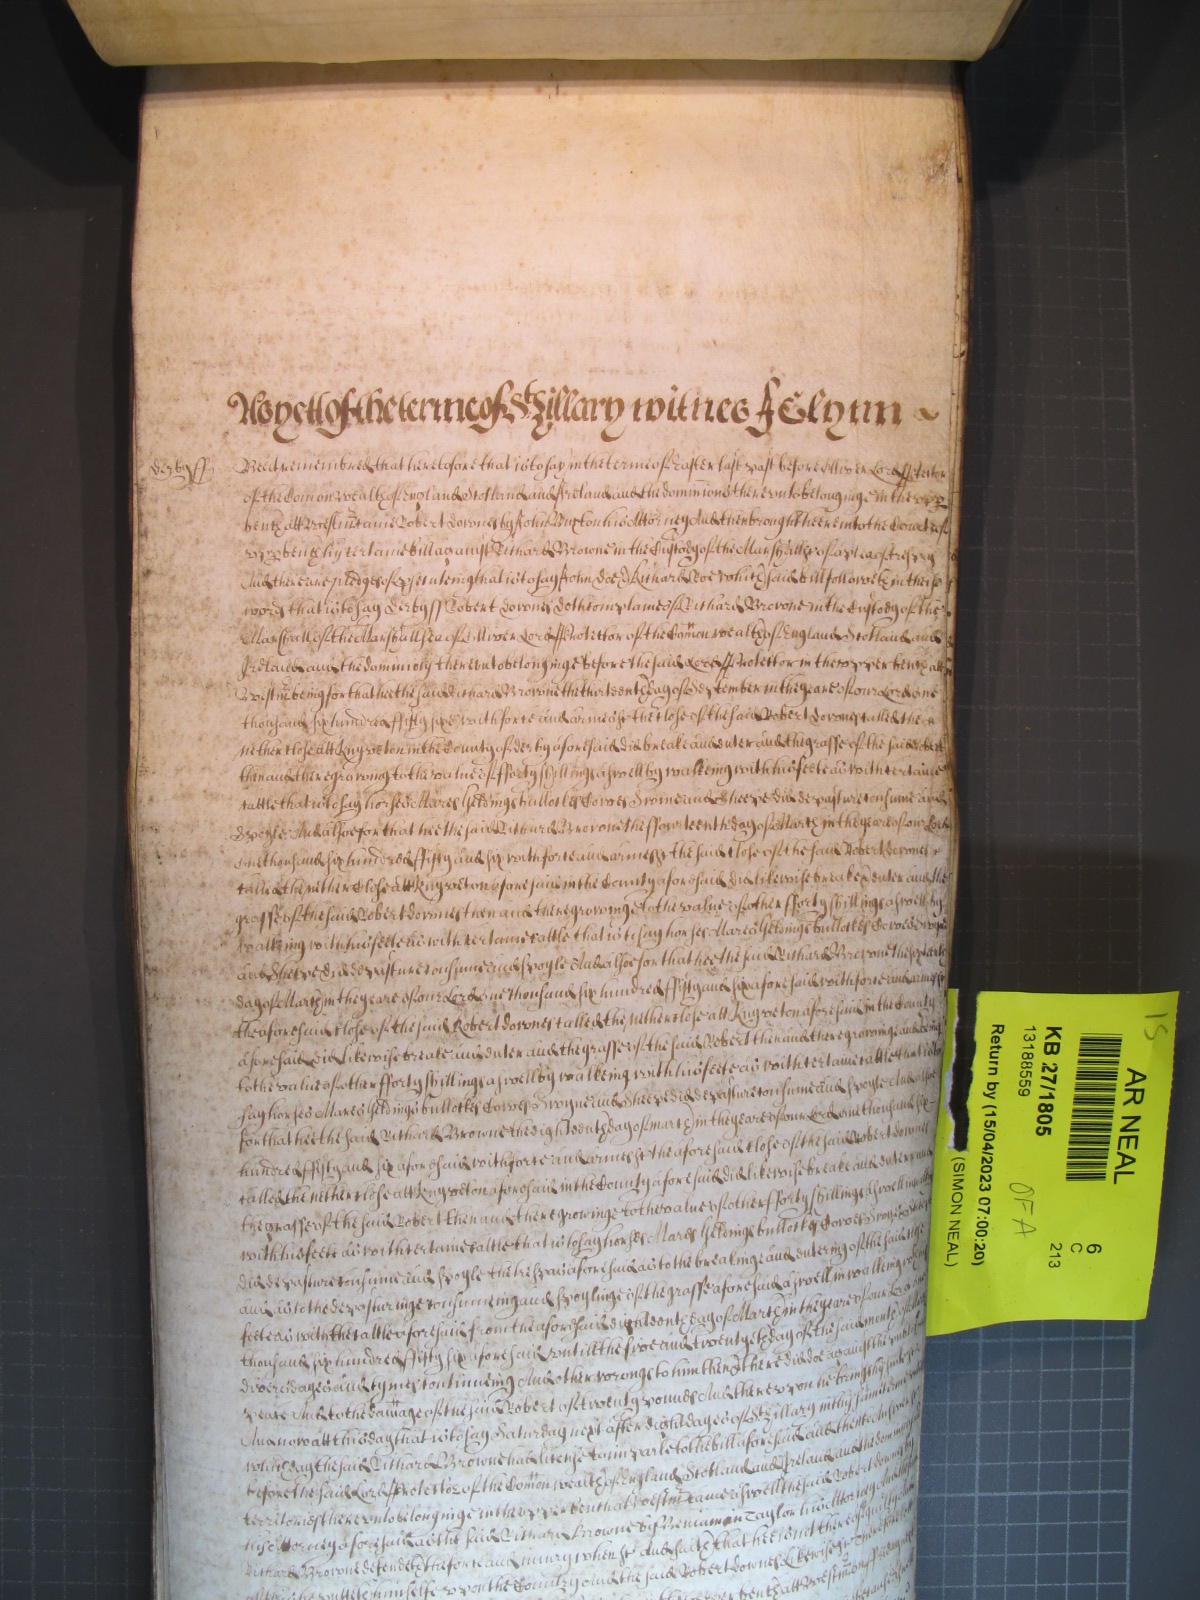 As yett of the terme of St Hillary witnes J Glynn
Derby ss
Bee it remembred that heretofore that is to say in the terme of Easter last past before Oliver Lord Protector
of the Comon wealth of England Scotland and Ireland and the dominions thereunto belonginge in the upp
bench att Westm came Robert Downes by John Buxton his Attorney And then brought here into the Court of
upp bench his certaine bill against Richard Browne in the Custody of the Marshall of a plea of trespas
And there are pledges of prosecuteing that is to say John Doe & Richard Roe which said bill followeth in these
words that is to say Derby ss Robert Downes doth complaine of Richard Browne in the Custody of the
Marshall of the Marshallsea of Oliver Lord Protector of the Comon wealth of England Scotland and
Ireland and the dominions thereunto belonginge before the said Lord Protector in the upper bench att
Westm being for that hee the said Richard Browne the thirteenth day of September in the yeare of our Lord one
thousand six hundred fifty six with force and armes &c the close of the said Robert Downes called the
nether close att Kingweton in the County of derby aforesaid did breake and enter and the grasse of the said Robert
then and there growing to the value of forty shillings aswell by walkeing with his feete as with certaine
cattle that is to say horses Mares Geldings bullockes Cowes Swine and Sheepe did depasture consume and
spoyle And alsoe for that hee the said Richard Browne the fowerteenth day of March in the yeare of our Lord
one thousand six hundred fifty and six with force and armes &c the said close of the said Robert Downes
called the nether Close att Kingweton aforesaid in the County aforesaid did likewise breake & enter and the
grasse of the said Robert downes then and there growinge to the value of other forty shillings aswell by
walking with his feete as with certaine cattle that is to say horses Mares Geldings bullockes Cowes Swyne
and Sheepe did depasture consume and spoyle And alsoe for that hee the said Richard Browne the
day of March in the yeare of our Lord One thousand six hundred fifty and six aforesaid with force and armes &c
the aforesaid close of the said Robert downes called the nether close att Kingweton aforesaid in the County
aforesaid did likewise breake and enter and the grasse of the said Robert then and there growinge and being
to the value of other forty shillings aswell by walkeing with his feete as with certaine cattle that is to
say horses Mares Geldings bullockes Cowes Swyne and Sheepe did depasture consume and spoyle And alsoe
for that hee the said Richard Browne the eighteenth day of march in the yeare of our Lord one thousand six
hundred fifty and six aforesaid with force and armes &c the aforesaid close of the said Robert downes
called the nether close att Kingweton aforesaid in the County aforesaid did likewise breake and enter and
the grasse of the said Robert then and there growinge to the value of other forty shillings aswell in walkeing
with his feete as with certaine cattle that is to say horses Mares Geldings bullockes Cowes Swyne & Sheepe
did depasture consume and spoyle the trespas aforesaid as to the breakinge and entering of the said close
and as to the depasturinge consumeing and spoylinge of the grasse aforesaid aswell in walkeing with his
feete as with the cattle aforesaid from the aforesaid eighteenth day of March in the yeare of our Lord one
thousand six hundred fifty six aforesaid untill the five and twentyeth day of the said month of
divers dayes and tymes continueing And other wrongs to him then & there did doe against the publique
peace And to the damage of the said Robert of twenty pounds And thereupon he brings his suite &c
And now att this day that is to say Saturday next after eight dayes of St Hillary in this same terme untill
which day the said Richard Browne had licence to imparle to the bill aforesaid and then to Answer &c
before the said Lord Protector of the Comon wealth of England Scotland and Ireland and the dominions and
territories thereunto belonginge in the upper bench att Westm came aswell the said Robert downes by
his Attorney aforesaid as the said Richard Browne by Beniamin Taylor his Attorney And the said
Richard Browne defendeth the force and iniury when &c And saith that hee is not thereof guilty And
of this putteth himselfe upon the Country And the said Robert downes likewise &c Therefore
AR NEAL
6
C
213
KB 27/1805
13188559
Return by (15/04/2023 07:00:20)
(SIMON NEAL)
15
OF A